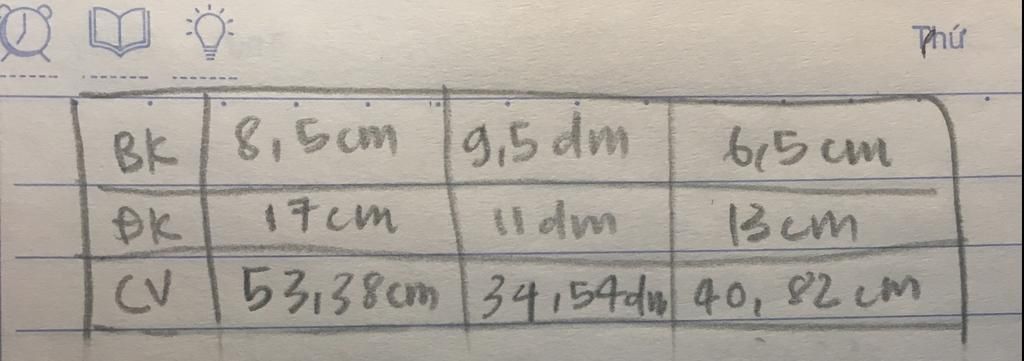 Thứ
BK 8,5cm 9,5 dm 6,5 cm
ĐK 17cm 11dm 13 cm
CV 53,38cm 34,54dm 40,82 cm